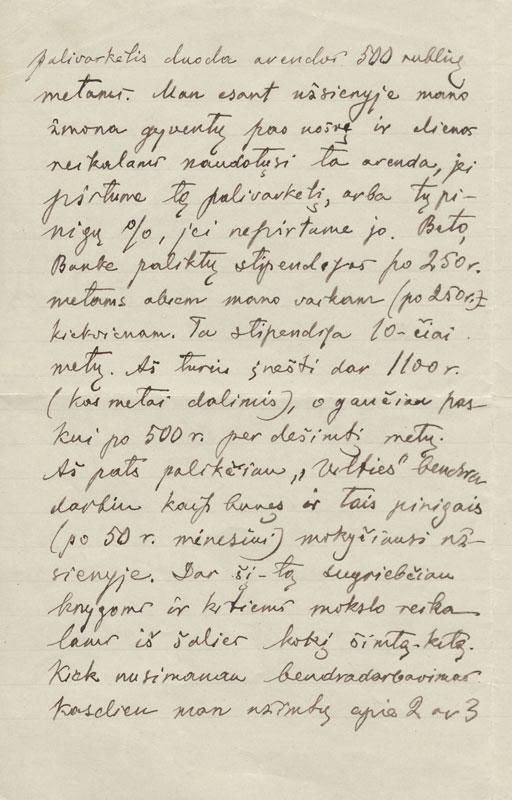 palivarkėlis duoda arendos 500 rublių
metams. Man esant užsienyje mano
žmona gyventų pas uošvę ir dienos
reikalams naudotųsi ta arenda, jei
pirktume tą palivarkėlį, arba tų pi-
nigų %, jei nepirktume jo. Beto,
Banke paliktų stipendijos po 250 r.
metams abiem mano vaikam (po 250 r.)
kiekvienam. Ta stipendija 10-čiai
metų. Aš turiu įnešti dar 1100 r.
(kas metai dalimis), o gaučiau pas-
kui po 500 r. per dešimtį metų.
Aš pats palikčiau „Vilties" bendra
darbiu kaip buvęs ir tais pinigais
(po 50 r. mėnesiui) mokyčiausi už-
sienyje. Dar šį-tą sugriebčiau
knygoms ir kitiems mokslo reika
lams iš šalies kokį šimtą-kitą.
Kiek nusimanau bendradarbavimas
kasdien man užimtų apie 2 ar 3